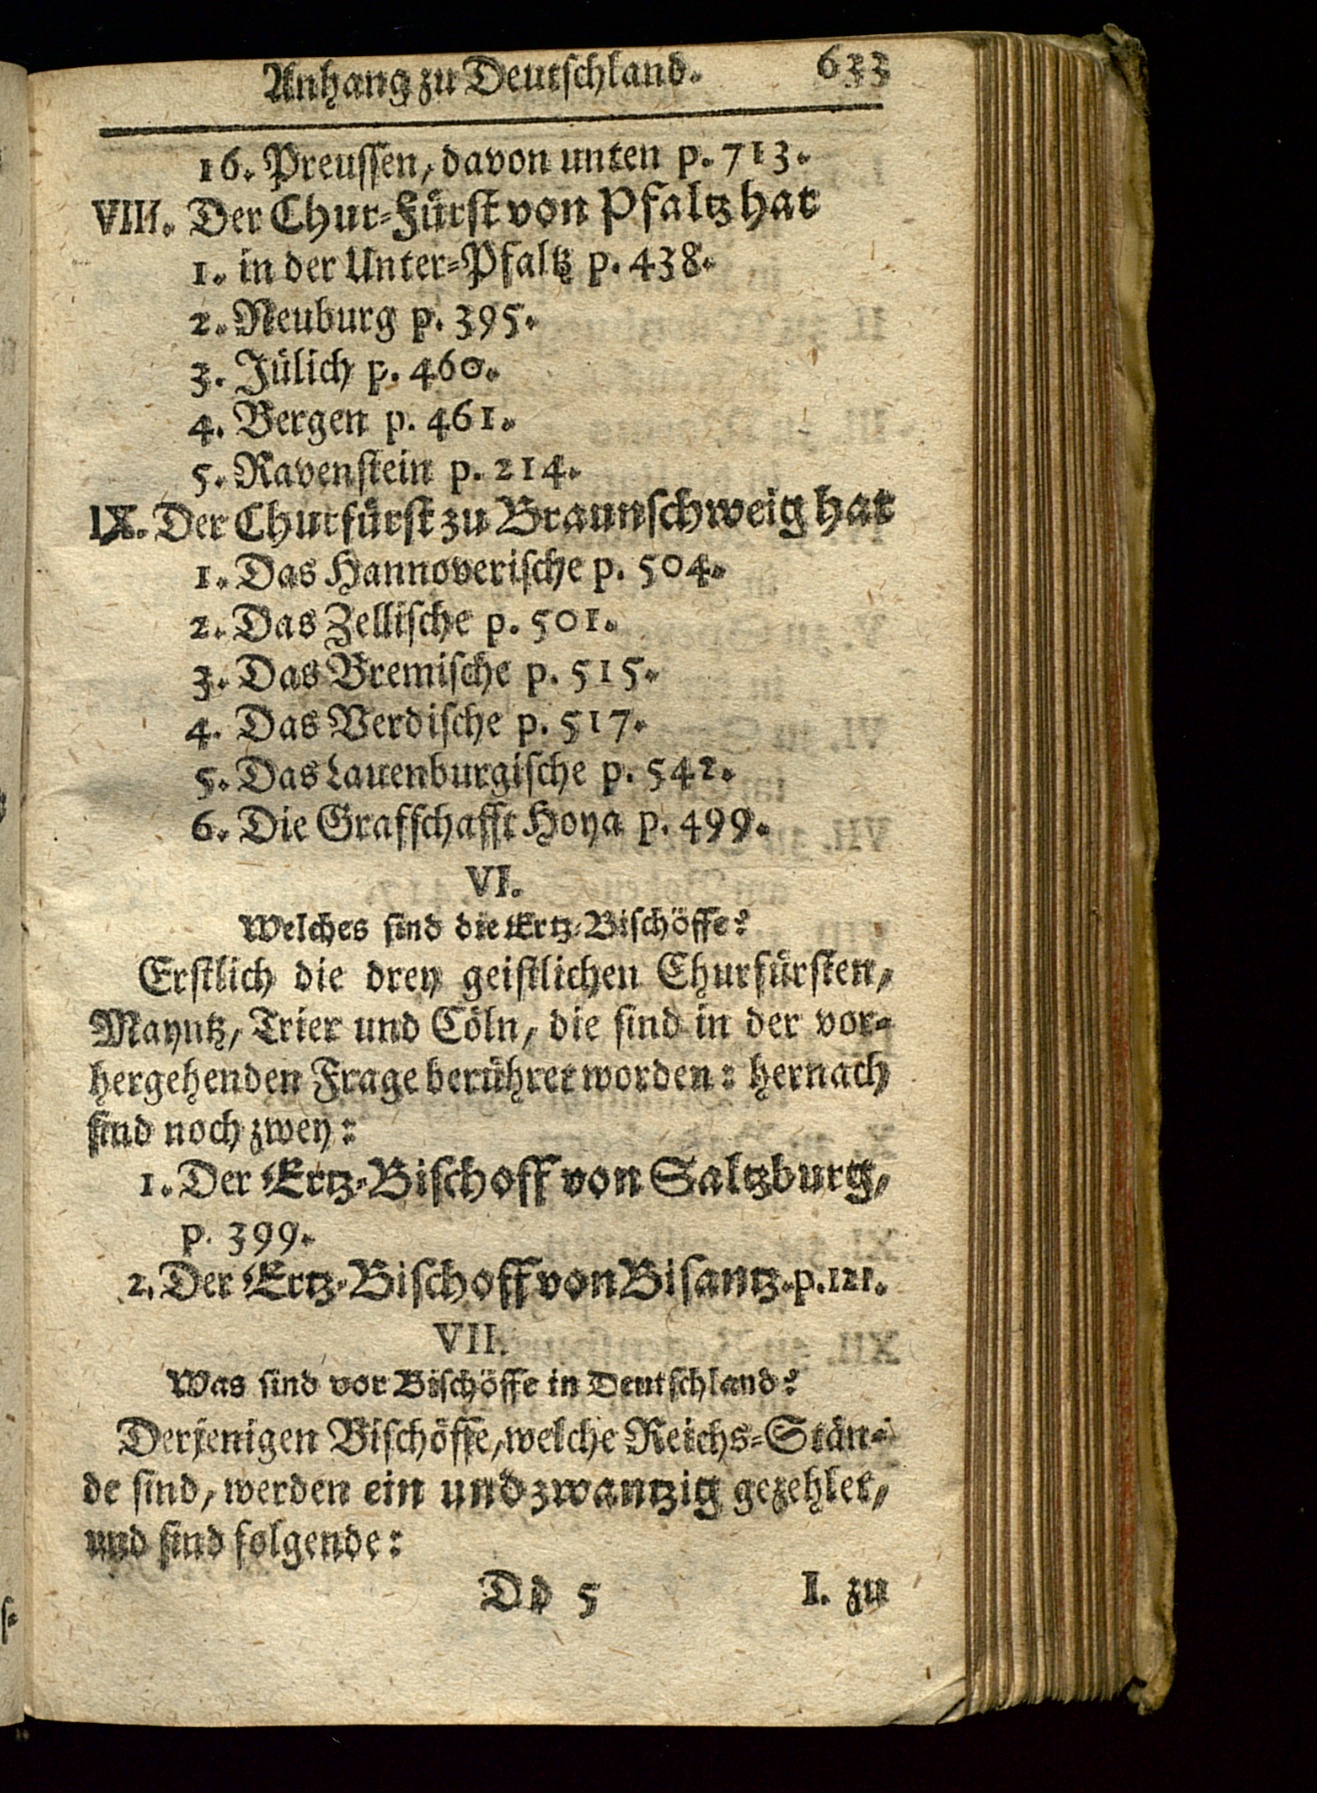 Anhang zu Deutschland. 633
16. Preussen, davon unten p. 713.
VIII. Der Chur-Fürst von Pfaltz hat
1. in der Unter-Pfaltz p. 438.
2. Neuburg p. 395.
3. Jülich p. 460.
4. Bergen p. 461.
5. Ravenstein p. 214.
IX. Der Churfürst zu Braunschweig hat
1. Das Hannoverische p. 504.
2. Das Zellische p. 501.
3. Das Bremische p. 515.
4. Das Verdische p. 517.
5. Das Lauenburgische p. 542.
6. Die Graffschafft Hoya p. 499.
VI.
Welches sind die Ertz-Bischöffe?
Erstlich die drey geistlichen Churfürsten,
Mayntz, Trier und Cöln, die sind in der vor-
hergehenden Frage berühret worden: hernach
sind noch zwey:
1. Der Ertz-Bischoff von Saltzburg,
p. 399.
2. Der Ertz-Bischoff von Bisantz. p. 121.
VII.
Was sind vor Bischöffe in Deutschland?
Derjenigen Bischöffe, welche Reichs-Stän-
de sind, werden ein und zwantzig gezehlet,
und sind folgende:
Dd 5 I. zu